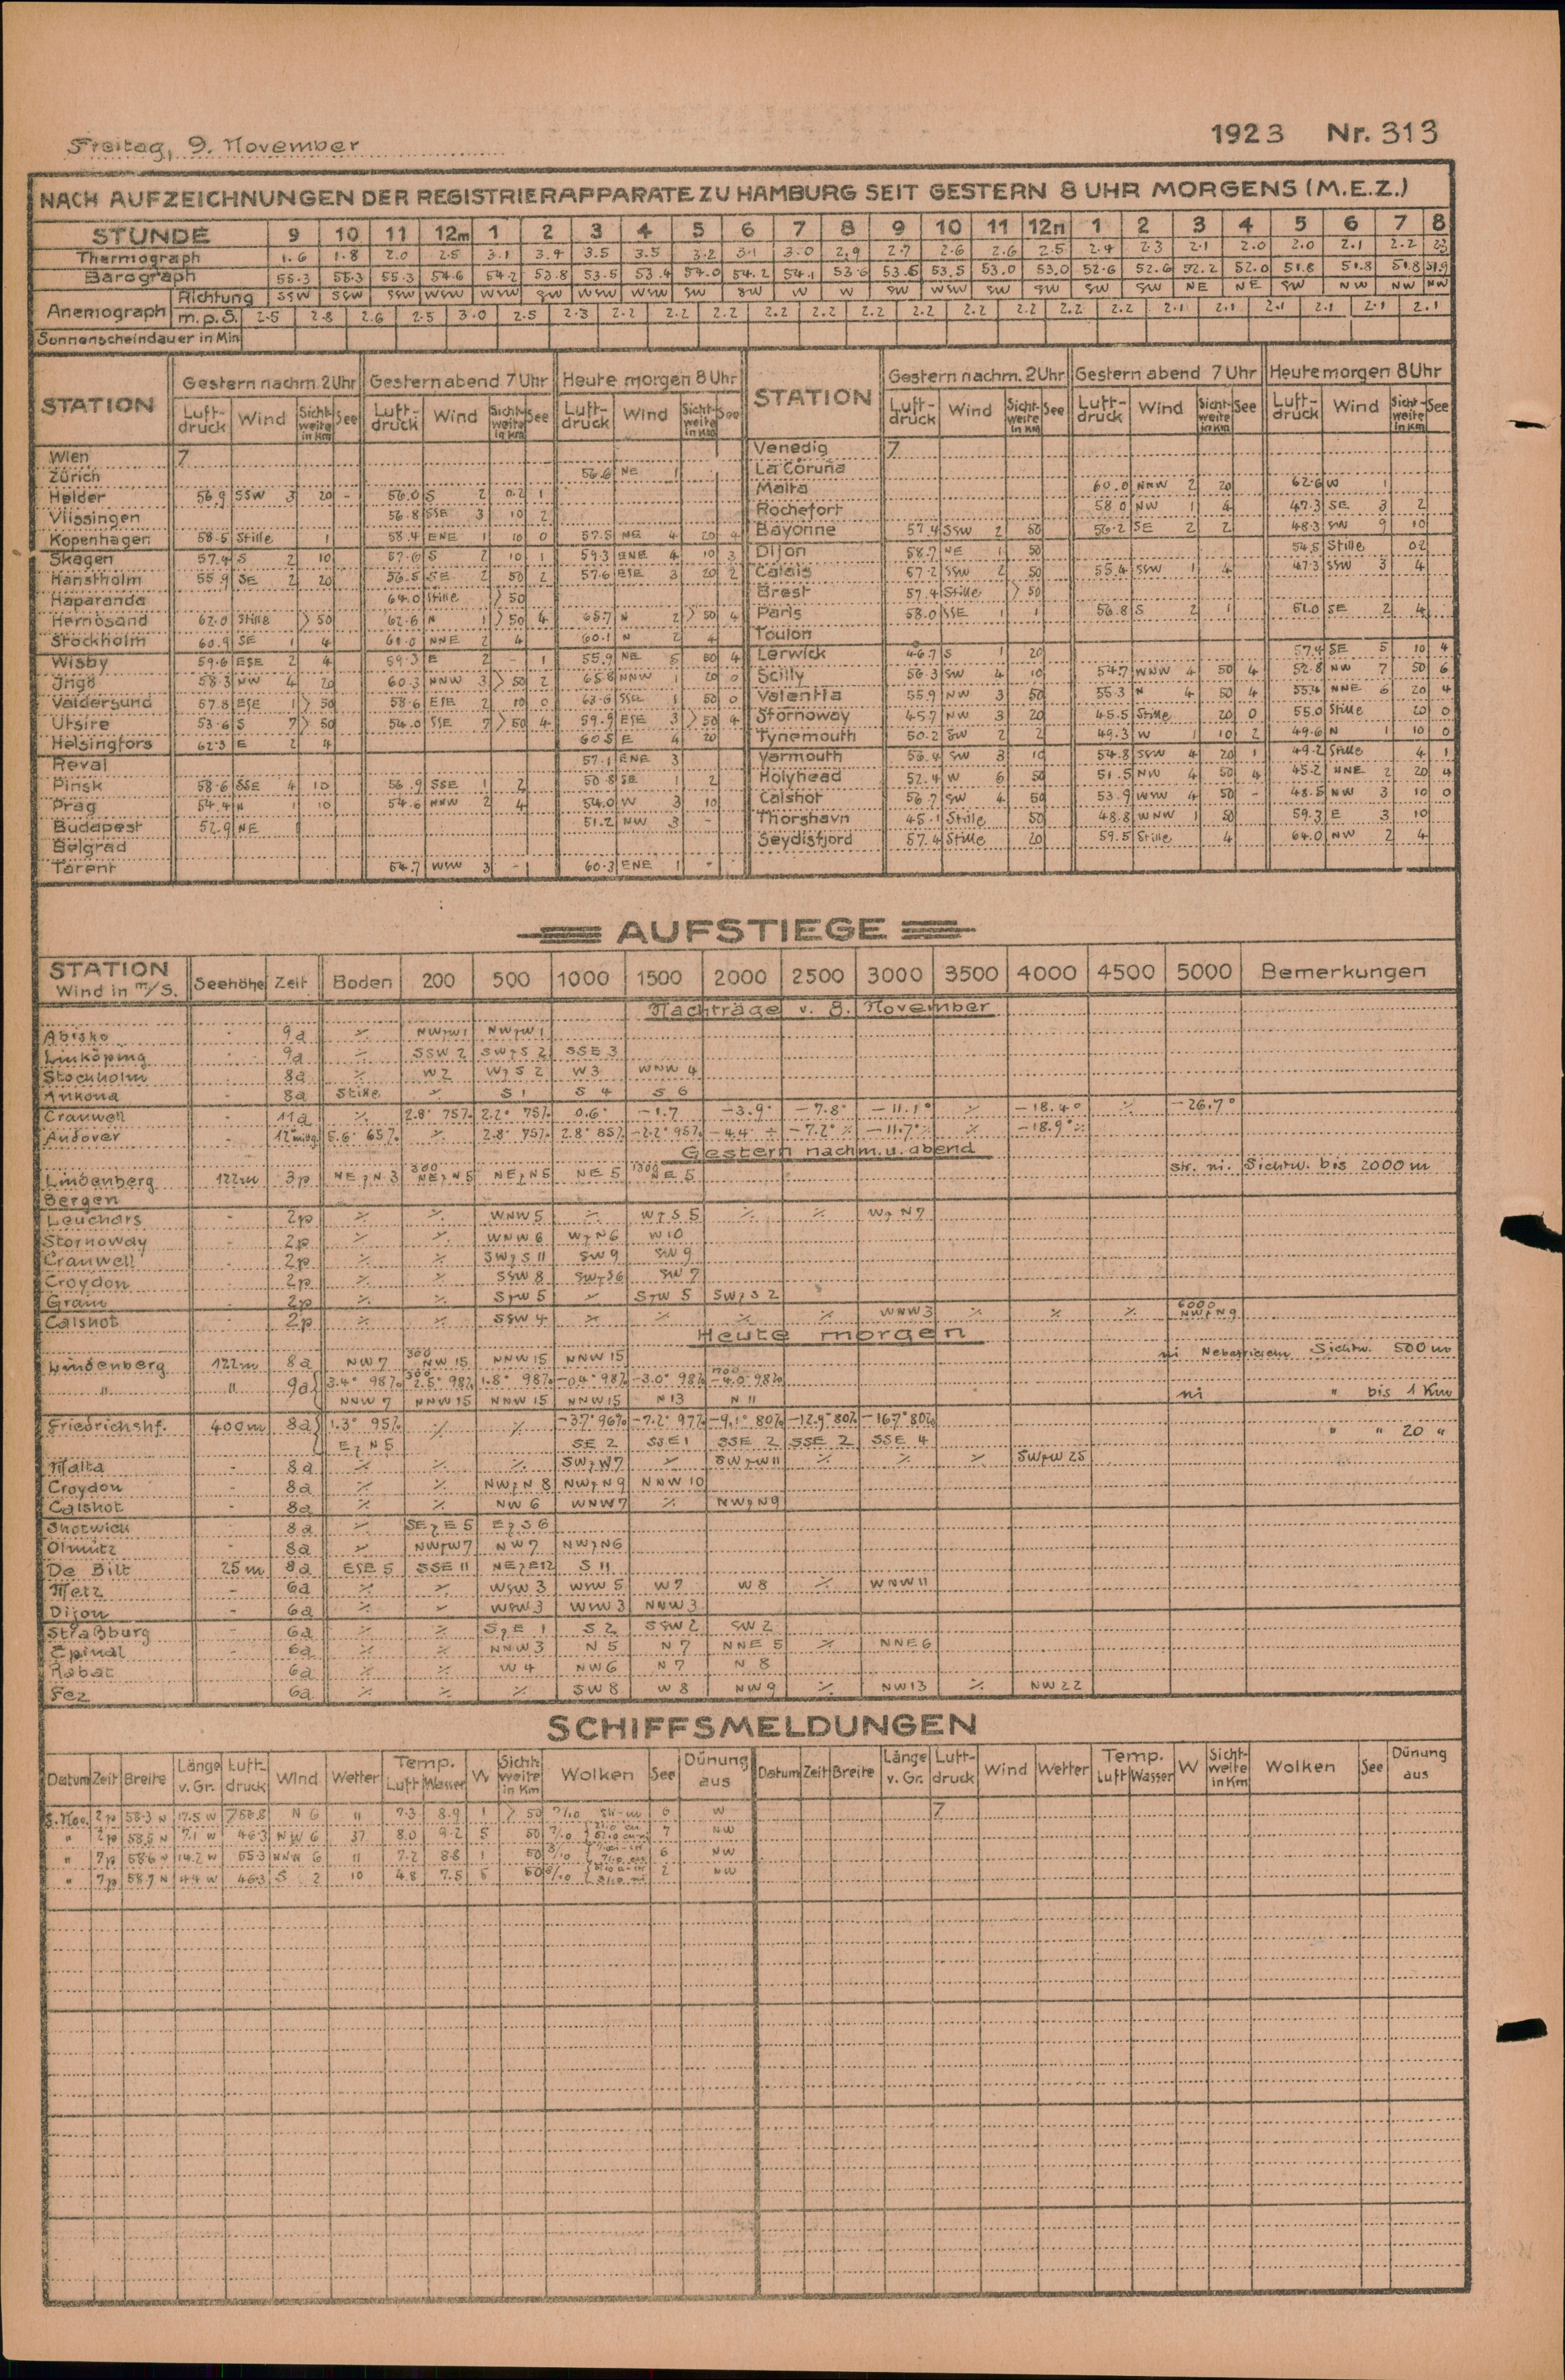 Freitag, 9. November 1923 Nr. 313
NACH AUFZEICHNUNGEN DER REGISTRIERAPPARATE ZU HAMBURG SEIT GESTERN 8 UHR MORGENS (M.E.Z.)
STUNDE 9 10 11 12m 1 2 3 4 5 6 7 8 9 10 11 12n 1 2 3 4 5 6 7 8
Thermograph 1.6 1.8 2.0 2.5 3.1 3.4 3.5 3.5 3.2 3.1 3.0 2.9 2.7 2.6 2.6 2.5 2.4 2.3 2.1 2.0 2.0 2.1 2.2 2.3
Barograph 55.3 55.3 55.3 54.6 54.2 53.8 53.5 53.4 54.0 54.2 54.1 53.6 53.5 53.5 53.0 53.0 52.6 52.6 52.2 52.0 51.8 51.8 51.8 51.9
Anemograph Richtung SSW SSW SSW WSW WSW SW WSW WSW SW SW W W SW WSW SW SW SW SW NE NE SW NW NW NW
m.p.S. 2.5 2.8 2.6 2.5 3.0 2.5 2.3 2.2 2.2 2.2 2.2 2.2 2.2 2.2 2.2 2.2 2.2 2.2 2.1 2.1 2.1 2.1 2.1 2.1
Sonnenscheindauer in Min
STATION Gestern nachm. 2 Uhr Gestern abend 7 Uhr Heute morgen 8 Uhr STATION Gestern nachm. 2 Uhr Gestern abend 7 Uhr Heute morgen 8 Uhr
Luft-druck Wind Sicht-weite in Km See Luft-druck Wind Sicht-weite in Km See Luft-druck Wind Sicht-weite in Km See Luft-druck Wind Sicht-weite in Km See Luft-druck Wind Sicht-weite in Km See Luft-druck Wind Sicht-weite in Km See
Wien 7 Venedig 7
Zürich 56.6 NE 1 La Coruña
Helder 56.9 SSW 3 20 - 56.0 S 2 0.2 1 Malta 60.0 NNW 2 20 62.6 W 1
Vlissingen 56.8 SSE 3 10 2 Rochefort 58.0 NW 1 4 47.3 SE 3 2
Kopenhagen 58.5 Stille 1 58.4 ENE 1 10 0 57.5 NE 4 20 4 Bayonne 57.4 SSW 2 50 56.2 SE 2 2 48.3 SW 9 10
Skagen 57.4 S 2 10 57.6 S 2 10 1 59.3 ENE 4 10 3 Dijon 58.7 NE 1 50 54.5 Stille 02
Hanstholm 55.9 SE 2 20 56.5 SE 2 50 2 57.6 ESE 3 20 2 Calais 57.2 SSW 2 50 55.4 SSW 1 4 47.3 SSW 3 4
Haparanda 64.0 Stille >50 Brest 57.4 Stille >50
Hernösand 62.0 Stille >50 62.6 N 1 >50 4 65.7 N 2 >50 4 Paris 58.0 SSE 1 1 56.8 S 2 1 51.0 SE 2 4
Stockholm 60.9 SE 1 4 61.0 NNE 2 4 60.1 N 2 4 Toulon
Wisby 59.6 ESE 2 4 59.3 E 2 - 1 55.9 NE 5 50 4 Lerwick 46.7 S 1 20 57.4 SE 5 10 4
Ingö 58.3 NW 4 20 60.3 NNW 3 >50 2 65.8 NNW 1 20 0 Scilly 56.3 SW 4 10 54.7 WNW 4 50 4 52.8 NW 7 50 6
Valdersund 57.8 ESE 1 >50 58.6 ESE 2 10 0 63.6 SSE 1 50 0 Valentia 55.9 NW 3 50 55.3 N 4 50 4 55.4 NNE 6 20 4
Utsire 53.6 S 7 >50 54.0 SSE 7 >50 4 59.9 ESE 3 >50 4 Stornoway 45.7 NW 3 20 45.5 Stille 20 0 55.0 Stille 20 0
Helsingfors 62.3 E 2 4 60.5 E 4 20 Tynemouth 50.2 SW 2 2 49.3 W 1 10 2 49.6 N 1 10 0
Reval 57.1 ENE 3 Yarmouth 56.4 SW 3 10 54.8 SSW 4 20 1 49.2 Stille 4 1
Pinsk 58.6 SSE 4 10 56.9 SSE 1 2 50.8 SE 1 2 Holyhead 52.4 W 6 50 51.5 NW 4 50 4 45.2 NNE 2 20 4
Prag 54.4 N 1 10 54.6 NNW 2 4 54.0 W 3 10 Calshot 56.7 SW 4 50 53.9 WSW 4 50 - 48.5 NW 3 10 0
Budapest 52.9 NE 1 51.2 NW 3 - Thorshavn 45.1 Stille 50 48.8 WNW 1 50 59.3 E 3 10
Belgrad Seydisfjord 57.4 Stille 20 59.5 Stille 4 64.0 NW 2 4
Tarent 54.7 WSW 3 - 1 60.3 ENE 1 - -
AUFSTIEGE
STATION Wind in m/S. Seehöhe Zeit Boden 200 500 1000 1500 2000 2500 3000 3500 4000 4500 5000 Bemerkungen
Nachträge v. 8. November
Abisko - 9a ٪ NWzW1 NWzW1
Linköping - 9a ٪ SSW 2 SWzS 2 SSE 3
Stockholm - 8a ٪ W2 WzS 2 W3 WNW 4
Ankona - 8a Stille ٪ S 1 S 4 S 6
Cranwell - 11a ٪ 2.8° 75% 2.2° 75% 0.6° -1.7 -3.9° -7.8° -11.1° ٪ -18.4° ٪ -26.7°
Andover - 12°mittg. 5.6° 65% ٪ 2.8° 75% 2.8° 85% -2.2° 95% -4.4° ٪ -7.2° ٪ -11.7° ٪ ٪ -18.9° ٪
Gestern nachm. u. abend
Lindenberg 122m 3p NEzN 3 300 NEzN 5 NEzN5 NE 5 1300 NE 5 str. ni. Sichtw. bis 2000 m
Bergen
Leuchars - 2p ٪ ٪ WNW 5 ٪ WzS 5 ٪ ٪ WzN7
Stornoway - 2p ٪ ٪ WNW 6 WzN6 W10
Cranwell - 2p ٪ ٪ SWzS 11 SW 9 SW 9
Croydon - 2p ٪ ٪ SSW 8 SWzS6 SW 7
Grain - 2p ٪ ٪ SzW 5 ٪ SzW 5 SWzS 2
Calshot - 2p ٪ ٪ SSW 4 ٪ ٪ ٪ ٪ WNW 3 ٪ ٪ ٪ 6000 NWzN9
Heute morgen
Lindenberg 122m 8a NW 7 300 NW 15 NNW 15 NNW 15 ni Nebelrieseln Sichtw. 500 m
" " 9a 3.4° 98% 300 2.5° 98% 1.8° 98% -0.4° 98% -3.0° 98% 1700 -4.0° 98%
NNW 7 NNW 15 NNW 15 NNW 15 N 13 N 11 ni " bis 1 Km
Friedrichshf. 400m 8a 1.3° 95% ٪ ٪ -3.7° 96% -7.2° 97% -9.1° 80% -12.9° 80% -16.7° 80%
EzN 5 SE 2 SSE 1 SSE 2 SSE 2 SSE 4 " " 20 "
Malta - 8a ٪ ٪ ٪ SWzW7 ٪ SWzW11 ٪ ٪ ٪ SWzW 25
Croydon - 8a ٪ ٪ NWzN 8 NWzN9 NNW 10
Calshot - 8a ٪ ٪ NW 6 WNW7 ٪ NWzN9
Shotwick 8a ٪ SEzE 5 EzS 6
Olmütz 8a ٪ NWzW7 NW 7 NWzN6
De Bilt 25m 8a ESE 5 SSE 11 NEzE12 S 11
Metz - 6a ٪ ٪ WSW 3 WSW 5 W 7 W 8 ٪ WNW 11
Dijon - 6a ٪ ٪ WSW 3 WSW 3 NNW 3
Straßburg - 6a ٪ ٪ SzE 1 S 2 SSW 2 SW 2
Epinal - 6a ٪ ٪ NNW 3 N 5 N 7 NNE 5 ٪ NNE 6
Rabat 6a ٪ ٪ W 4 NW 6 N 7 N 8
Fez 6a ٪ ٪ ٪ SW 8 W 8 NW 9 ٪ NW 13 ٪ NW 22
SCHIFFSMELDUNGEN
Datum Zeit Breite Länge v. Gr. Luft-druck Wind Wetter Temp. Luft Wasser W Sicht-weite in Km Wolken See Dünung aus Datum Zeit Breite Länge v. Gr. Luft-druck Wind Wetter Temp. Luft Wasser W Sicht-weite in Km Wolken See Dünung aus
8. Nov. 2p 58.3 N 17.5 W 756.8 N 6 11 7.3 8.9 1 >50 6 W 7
" 2p 58.5 N 7.1 W 46.3 NW 6 37 8.0 9.2 5 50 7 NW
" 7p 58.6 N 14.2 W 55.3 NNW 6 11 7.2 8.8 1 50 6 NW
" 7p 58.7 N 4.4 W 46.3 S 2 10 4.8 7.5 5 50 2 NW